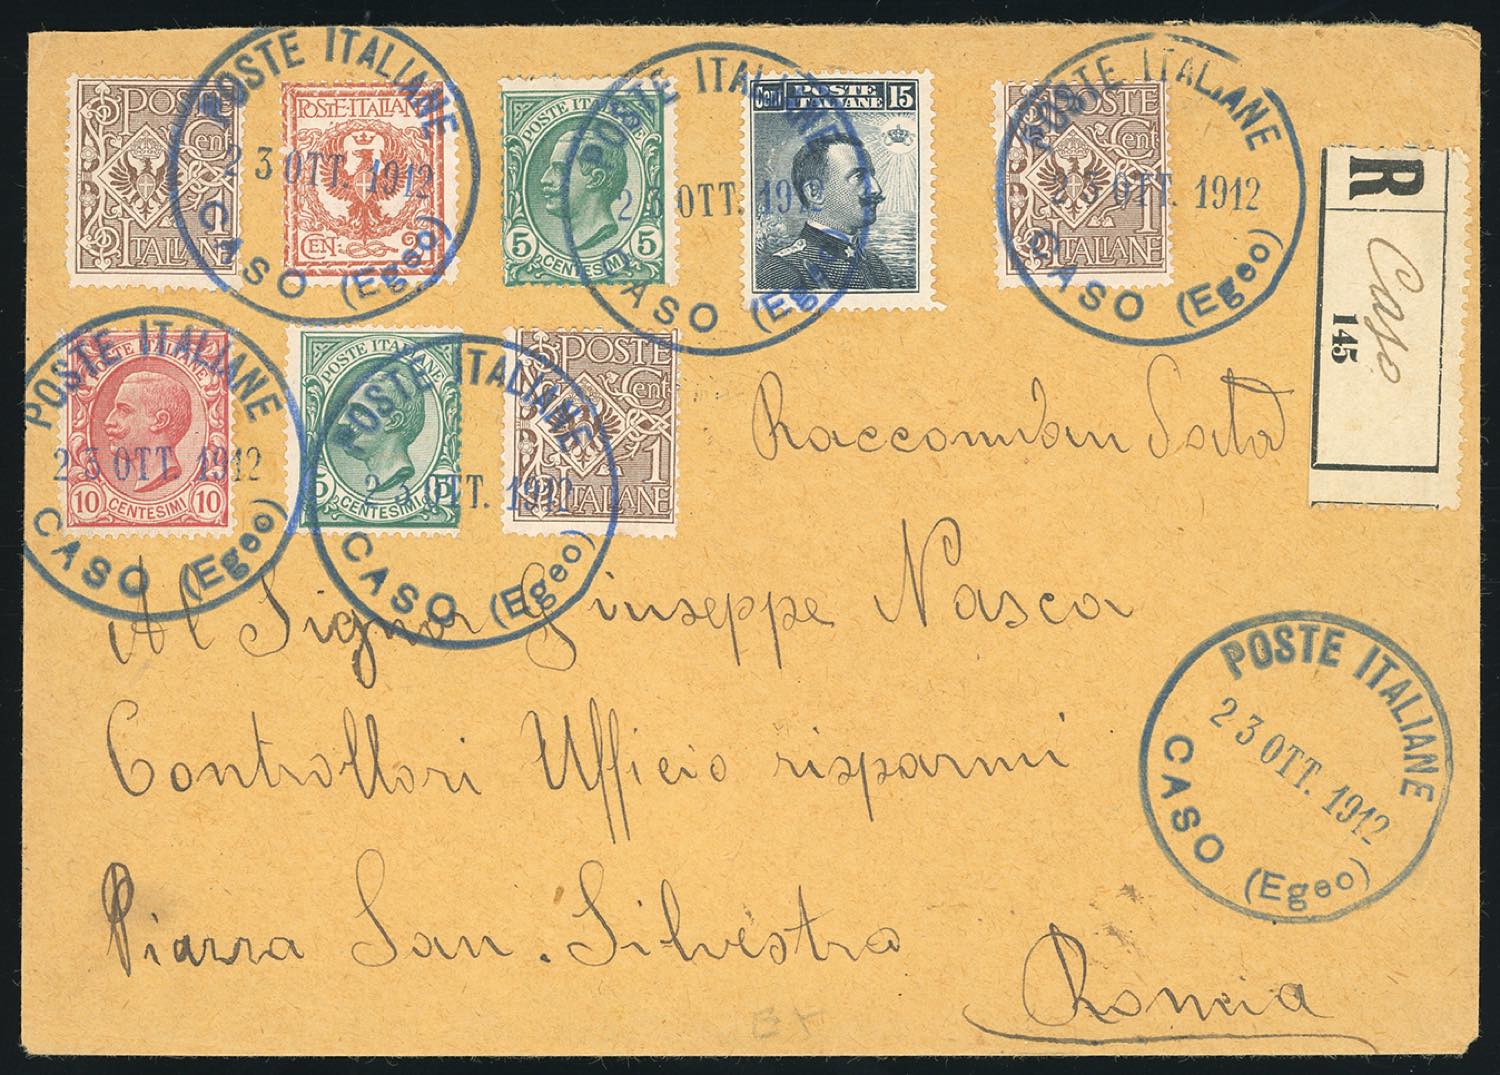 POSTE
Cent
1
ITALIANE
POSTE ITALIANE
23 OTT. 1912
CASO (Egeo)
POSTE-ITALIANE
CEN: 2
POSTE ITALIANE
5 5
CENTESIMI
POSTE ITALIANE
23 OTT. 1912
CASO (Egeo)
Cent POSTE ITALIANE 15
POSTE
Cent
1
ITALIANE
POSTE ITALIANE
23 OTT. 1912
CASO (Egeo)
R
Caso
145
POSTE ITALIANE
10 CENTESIMI 10
POSTE ITALIANE
23 OTT. 1912
CASO (Egeo)
POSTE ITALIANE
5 5
CENTESIMI
POSTE ITALIANE
23 OTT. 1912
CASO (Egeo)
POSTE
Cent
1
ITALIANE
Raccoman
Al Signor Giuseppe Nasca
Controllori Ufficio risparmi
Piazza San. Silvestro
POSTE ITALIANE
23 OTT. 1912
CASO (Egeo)